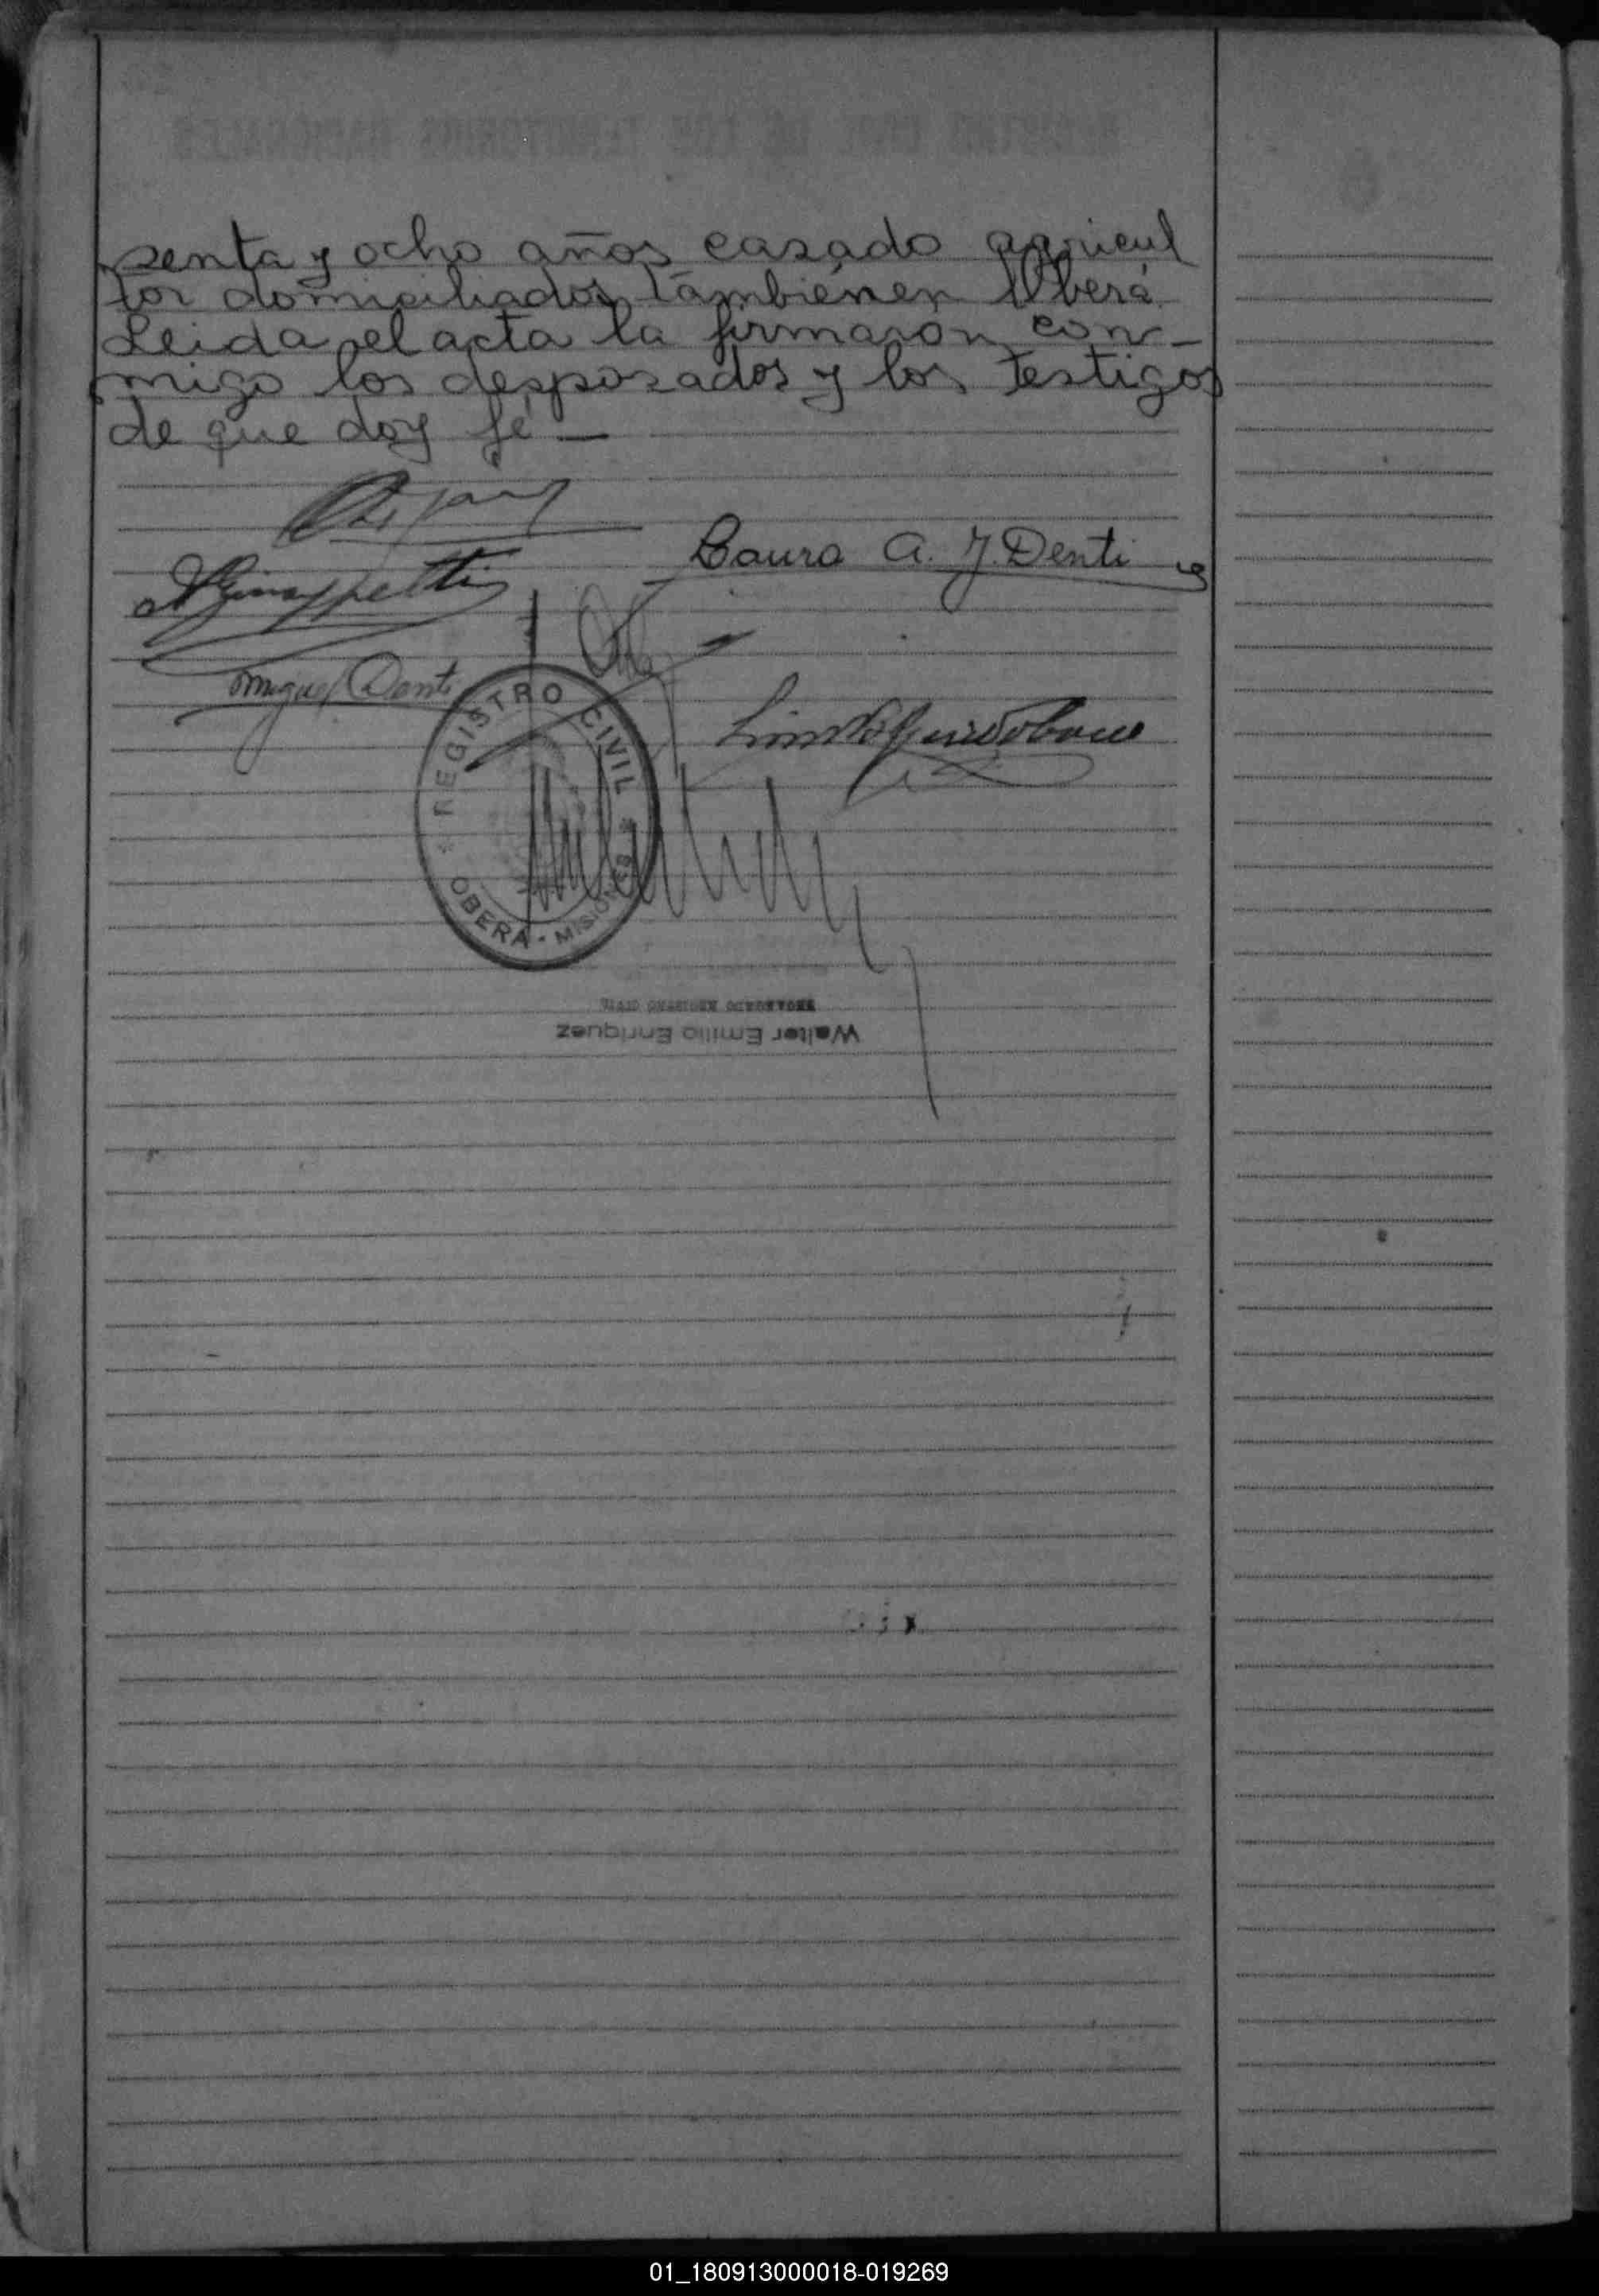 senta y ocho años casado agricul
tor domiciliados tambien en Oberá.
Leida el acta la firmaron con-
migo los desposados y los testigos
de que doy fé —
Laura A. J. Denti
Miguel Denti
REGISTRO CIVIL
OBERA - MISIONES
ENCARGADO REGISTRO CIVIL
Walter Emilio Enriquez
01_180913000018-019269